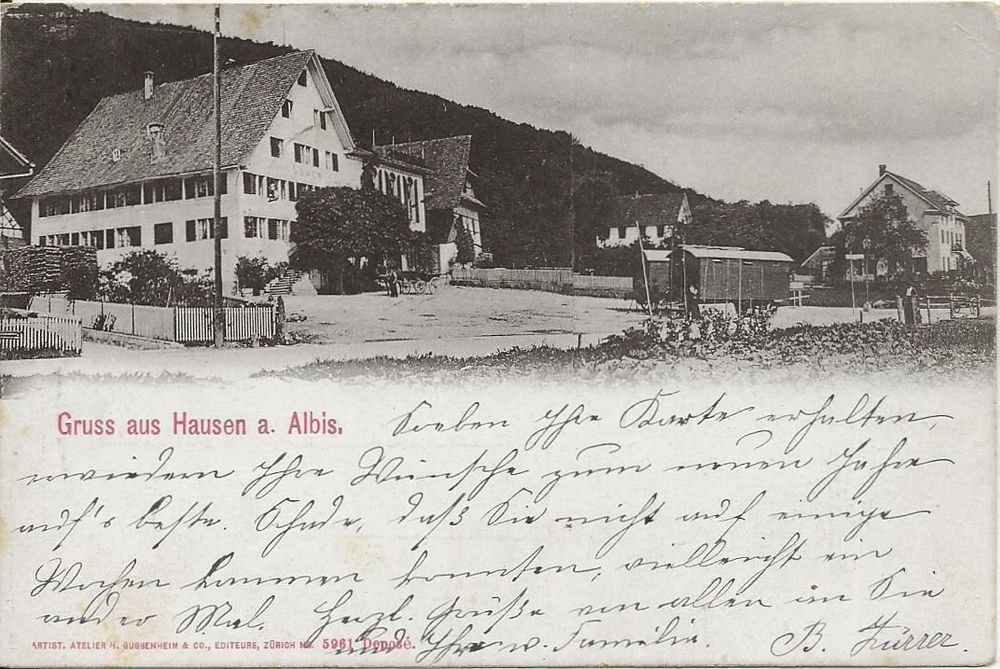 Gruss aus Hausen a. Albis.
Soeben Ihre Karte erhalten,
erwiedern Ihre Wünsche zum neuen Jahre
auf's beste. Schade, daß Sie nicht auf einige
Wochen kommen konnten, vielleicht ein
ander Mal. Herzl. Grüße von allen an Sie
und Ihre w. Familie. B. Zürrer.
ARTIST. ATELIER H. GUGGENHEIM & CO., EDITEURS, ZÜRICH No. 5961 Déposé.